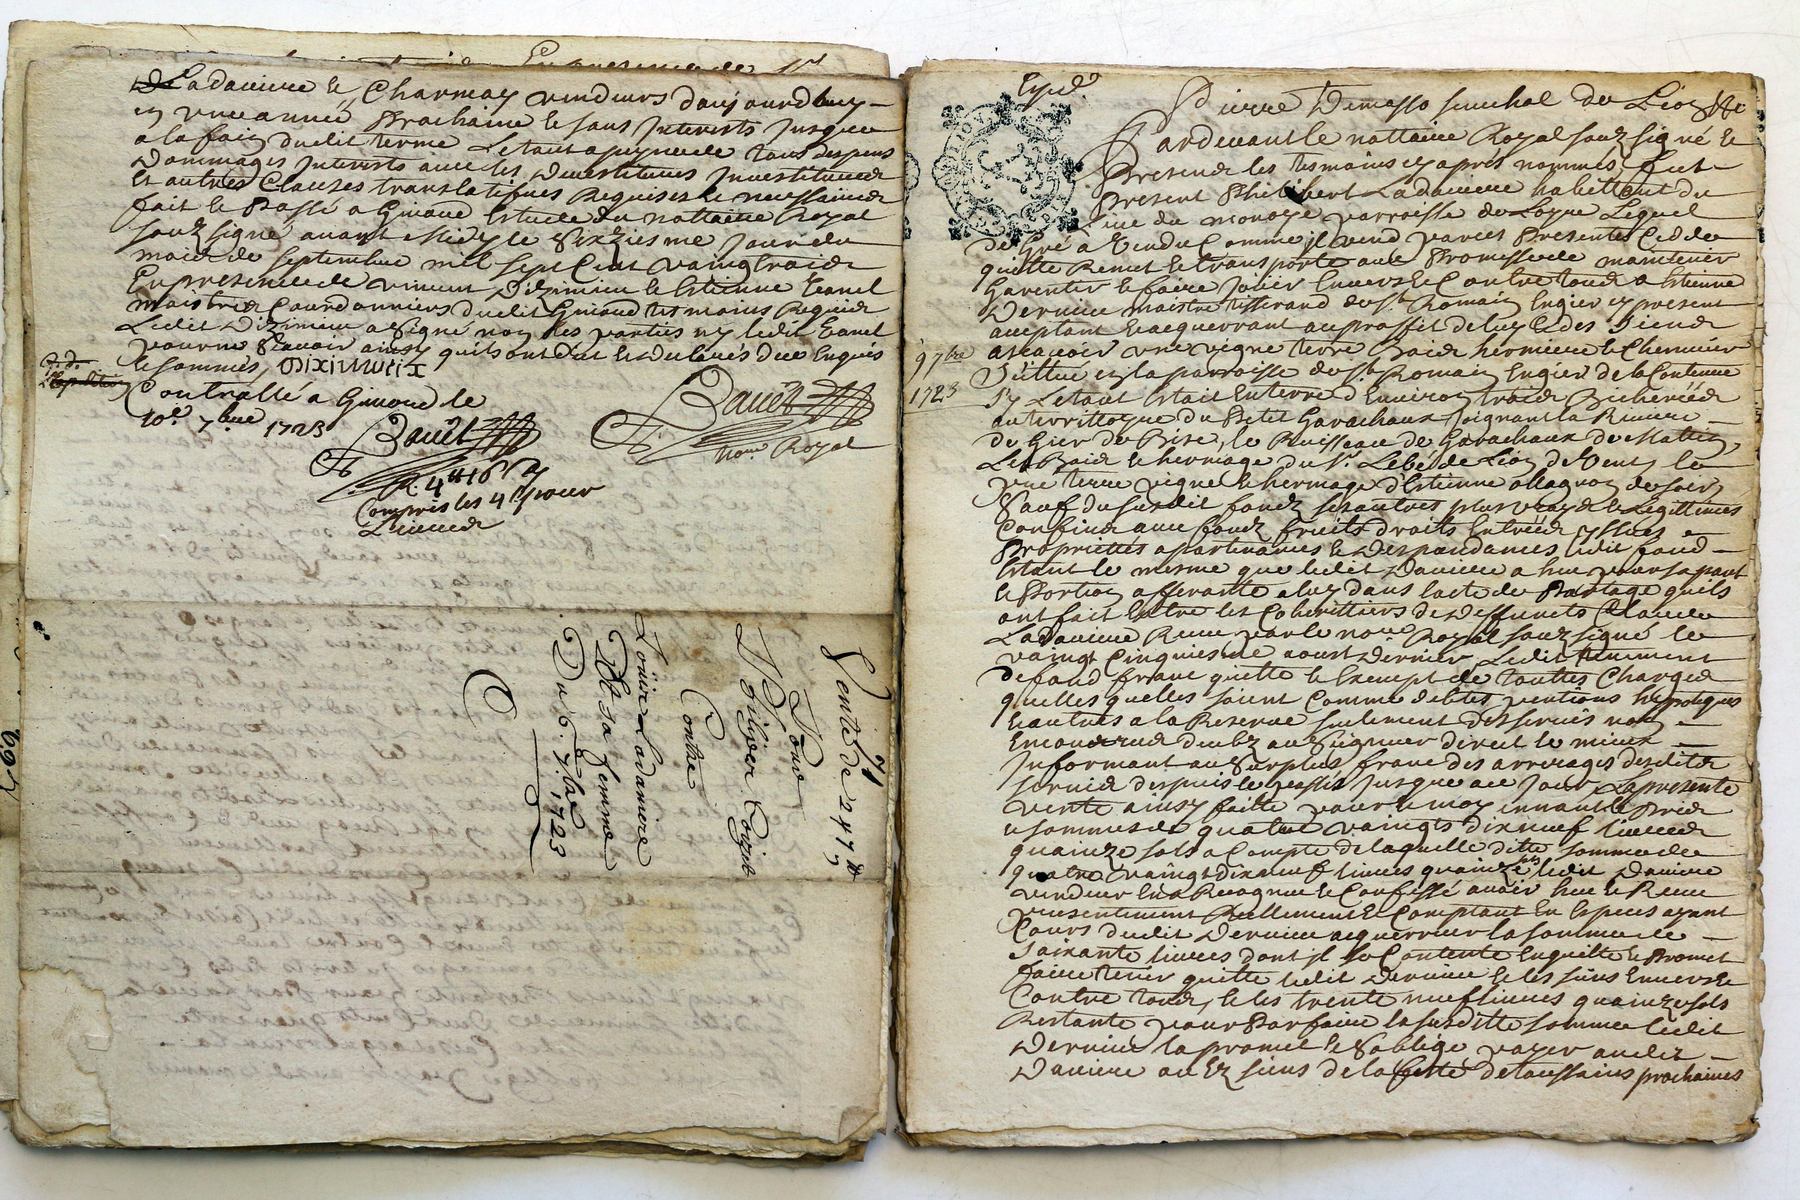 Ladaviere et Charmay vendeurs d'aujourdhuy
en une année prochaine et sans Interests Jusques
a la fin dudit terme Le tout a peyne de tous despens
Dommages Interests avec les Devestitures Investitures
Et autres Clauses translatifves Requises et necessaires
fait et Passé a Givord Estude du nottaire Royal
souzsigné avant Midy le Sixziesme Jour du
mois de septembre mil sept Cent vaingt trois
En presence de vincent Dizimieu et Estienne
maistres Courdonniers dudit Givord tesmoins Requis
Ledit Dizimieu a signé non les parties ny ledit
pour ne scavoir ainsy quils ont dit et declaré de ce Enquis
et sommés,
Controllé a Givord le
10e 7bre 1723
no.re Royal
R. 4tt 16s
Compris les 4s pour
Livres
Vente de 247tt
Pour
Contre
Ladaviere
Et sa femme
Du 6. 7bre 1723
Expé.
Pierre Demasso senechal de Lion
Pardevant le nottaire Royal souz signé et
Presents les tesmoins cy apres nommés fut
Present Philibert Ladaviere habittant du
lieu du monoye parroisse de Loyre Lequel
de gré a Vendu Comme il vend par ces Presentes Cedde
quitte Remet et transporte avec Promesse de maintenir
Garentir et faire Jouir Envers et Contre tous a Estienne
Dervieu maistre tisserand de St. Romain En gier cy present
acceptant et acquerrant au proffit de luy et des siens
9 7bre
1723
a scavoir une vigne terre Bois hermiere et Chenevier
Scittué en la parroisse de St. Romain En gier de la Contenue
Le tout Estait En terre d'Environ trois Bicherées
au territtoyre du Petit Garachaux Joignant la Riviere
de Gier de Bize, le Ruisseau de Garachaux de Matin,
Les Bois et hermage du Sr. Lebé de Lion de Vent, la
vne terre vigne et hermage d'Estienne de soir
Sauf du susdit fondz ses autres plus vrays et Legittimes
Confins avec fondz fruits droits Entrées yssues
Proprietés apartenances et Despandances ledit fond
Estant le mesme que ledit Daviere a heu pour sa part
et Portion afferante a luy dans l'acte de Partage quils
ont fait Entre les Coheritiers de deffunct Claude
Ladaviere Receu par le no.re Royal souz signé le
vaingt Cinquiesme aoust Dernier, Ledit tenement
de fond franc quitte et Exempt de touttes Charges
quelles quelles soient Comme debtes pentions hypotiques
Et autres a la Reserve seulement des servis noble
Informant au surplus franc des arrerages desdits
servis despuis le passé Jusques a ce Jour La presente
vente ainsy faitte pour et moyennant le Prix
et somme de quatre vaingts dix neuf livres
quainze sols a Compte de laquelle ditte somme de
quatre vaingt dix neuf livres quainze sols ledit Daviere
vendeur En a Recogneu et Confessé avoir heu et Receu
presentement Reellement et Comptant En Especes ayant
Cours dudit Dervieu acquerreur la somme de
Soixante livres dont il se Contente En quitte et Promet
faire tenir quitte ledit Dervieu et les siens Envers et
Contre tous, et les trente neuf livres quainze sols
Restante pour Parfaire la susditte somme ledit
Dervieu la promet et s'oblige payer audit
Daviere ou Ez siens de la feste de toussains prochaines